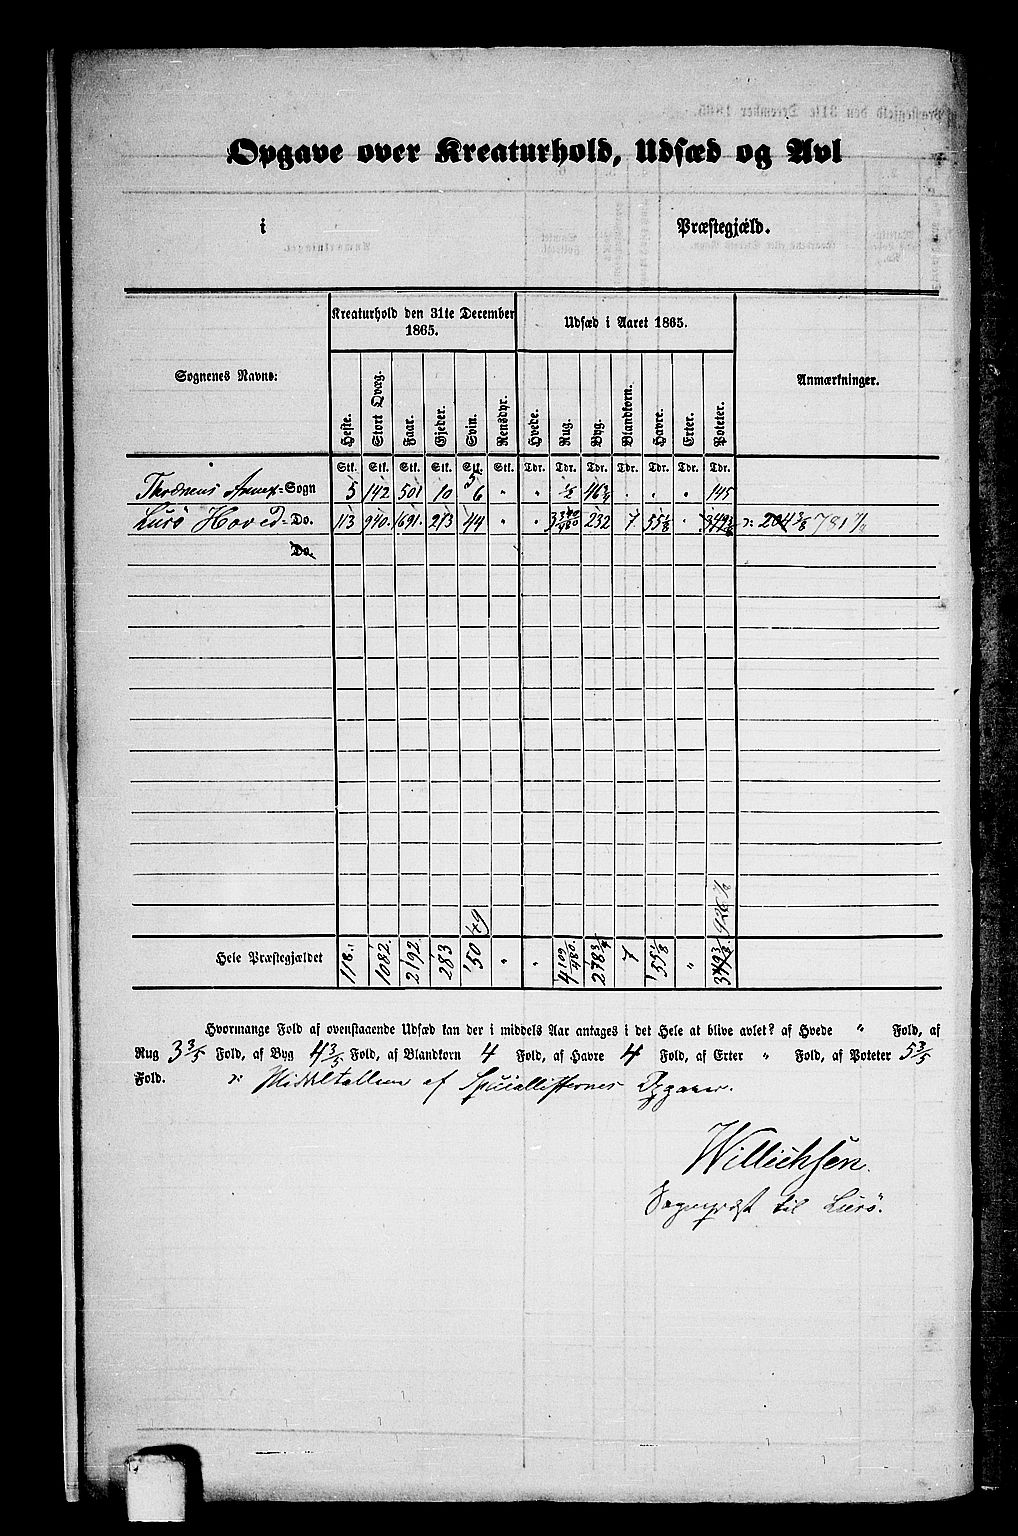 Opgave over Kreaturhold, Udsæd og Avl
i Præstegjæld.
Kreaturhold den 31te December 1865.
Udsæd i Aaret 1865.
Sognenes Navne:
Heste.
Stort Qvæg.
Faar.
Gjeder.
Svin.
Rensdyr.
Hvede.
Rug.
Byg.
Blandkorn.
Havre.
Erter.
Poteter.
Anmærkninger.
Stk. Stk. Stk. Stk. Stk. Stk. Tdr. Tdr. Tdr. Tdr. Tdr. Tdr. Tdr.
Thrænens Annex-Sogn 5 142 501 10 5 6 " " 1/2 46 3/4 " " " 145
Lurö Hoved-Do. 113 940. 1691. 273 44 " " 232 7 55 1/8 " 781 1/2
Do.
49 926 1/2
Hele Præstegjældet 118. 1082. 2192 283 50 " " 4 109/480. 278 3/4 7 55 1/8 "
Hvormange Fold af ovenstaaende Udsæd kan der i middels Aar antages i det Hele at blive avlet? af Hvede " Fold, af
Rug 3 3/5 Fold, af Byg 4 3/5 Fold, af Blandkorn 4 Fold, af Havre 4 Fold, af Erter " Fold, af Poteter 5 3/5
Fold. Middeltallene af Speciallisternes Opgaver.
Willichsen.
Sognepræst til Lurö.